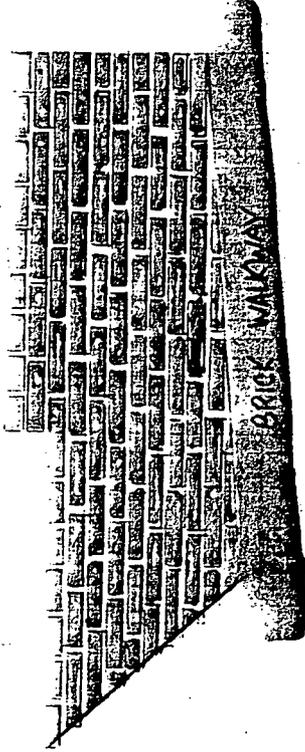 BRICK WALKWAY